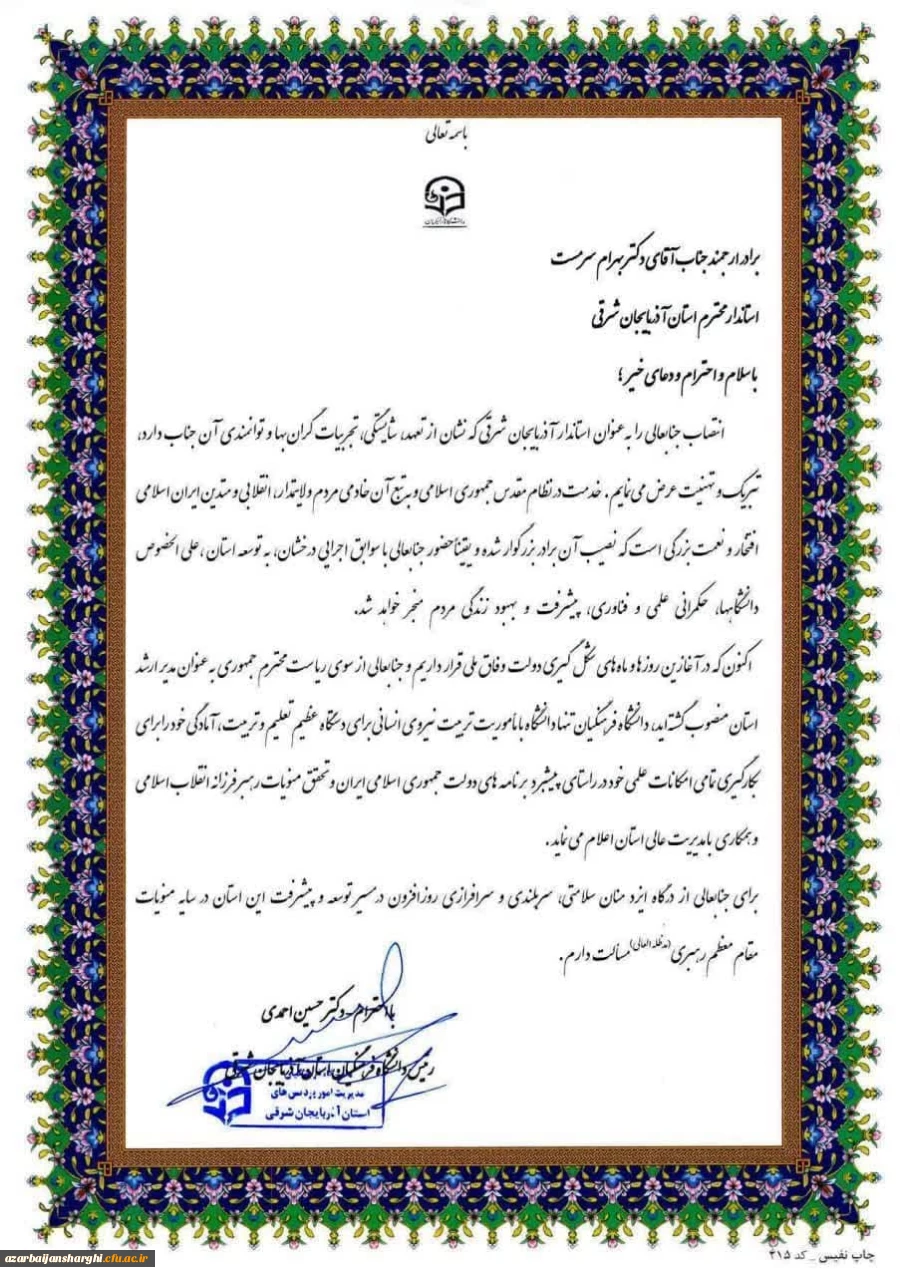 باسمه تعالی
دانشگاه فرهنگیان
برادر ارجمند جناب آقای دکتر بهرام سرمست
استاندار محترم استان آذربایجان شرقی
با سلام و احترام و دعای خیر ؛
انتصاب جنابعالی را به عنوان استاندار آذربایجان شرقی که نشان از تعهد، شایستگی، تجربیات گران بها و توانمندی آن جناب دارد،
تبریک و تهنیت عرض می نمایم . خدمت در نظام مقدس جمهوری اسلامی و به تبع آن خادمی مردم ولایتمدار، انقلابی و متدین ایران اسلامی
افتخار و نعمت بزرگی است که نصیب آن برادر بزرگوار شده و یقیناً حضور جنابعالی با سوابق اجرایی درخشان، به توسعه استان ، علی الخصوص
دانشگاهها، حکمرانی علمی و فناوری، پیشرفت و بهبود زندگی مردم منجر خواهد شد.
اکنون که در آغازین روزها و ماه های شکل گیری دولت وفاق ملی قرار داریم و جنابعالی از سوی ریاست محترم جمهوری به عنوان مدیر ارشد
استان منصوب گشته اید، دانشگاه فرهنگیان تنها دانشگاه با مأموریت تربیت نیروی انسانی برای دستگاه عظیم تعلیم و تربیت، آمادگی خود را برای
بکارگیری تمامی امکانات علمی خود در راستای پیشبرد برنامه های دولت جمهوری اسلامی ایران و تحقق منویات رهبر فرزانه انقلاب اسلامی
و همکاری با مدیریت عالی استان اعلام می نماید .
برای جنابعالی از درگاه ایزد منان سلامتی، سربلندی و سرافرازی روزافزون در مسیر توسعه و پیشرفت این استان در سایه منویات
مقام معظم رهبری (مدظله العالی) مسألت دارم .
با احترام - دکتر حسین احمدی
رئیس دانشگاه فرهنگیان استان آذربایجان شرقی
مدیریت امور پردیس های
استان آذربایجان شرقی
چاپ نفیس _ کد ۴۱۵
azarbaijansharghi.cfu.ac.ir